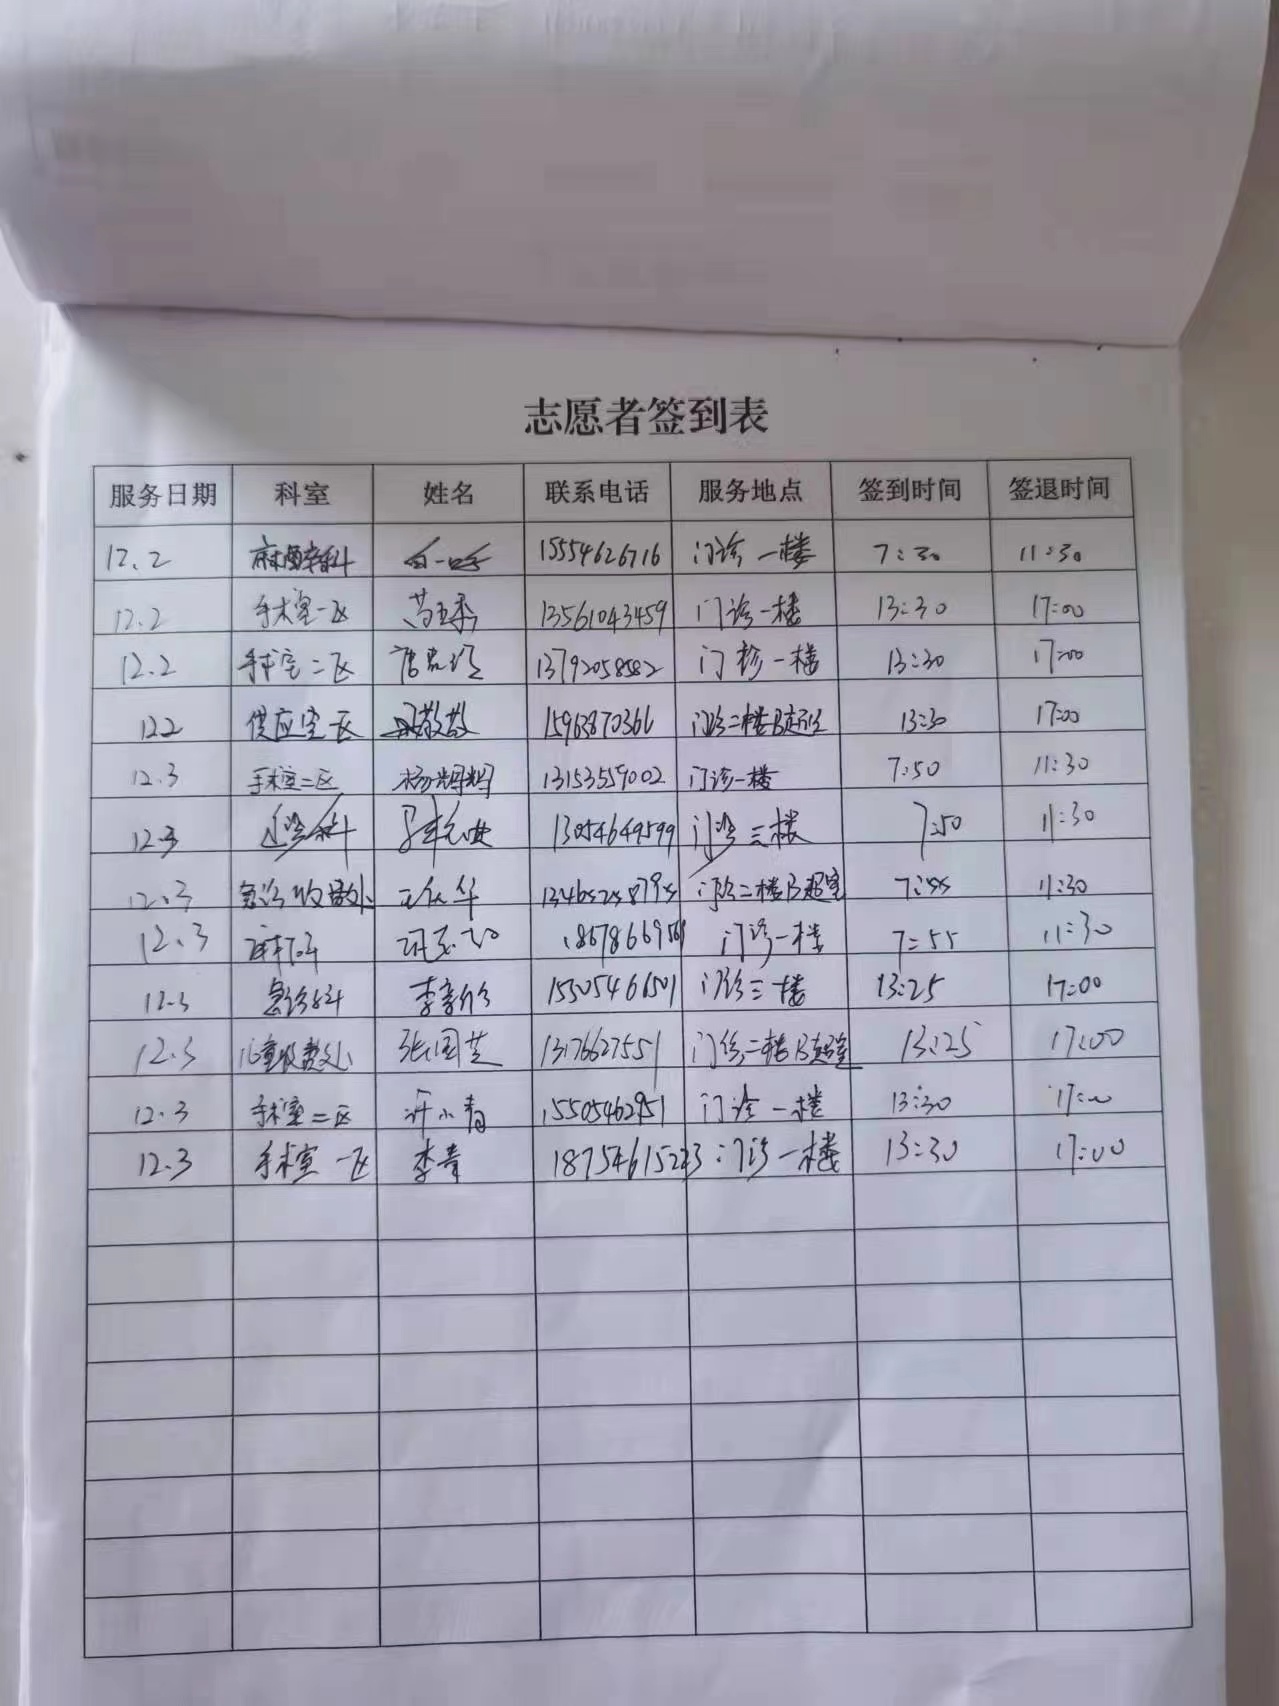 志愿者签到表
服务日期 科室 姓名 联系电话 服务地点 签到时间 签退时间
12.2 麻醉科 15554626716 门诊一楼 7:30 11:30
12.2 手术室一区 13561043459 门诊一楼 13:30 17:00
12.2 手术室二区 13792058582 门诊一楼 13:30 17:00
12.2 供应室一区 敬敬 15963870366 门诊二楼B超室 13:30 17:00
12.3 手术室二区 杨辉辉 13153559002 门诊一楼 7:50 11:30
12.3 13054649599 门诊三楼 7:50 11:30
12.3 急诊收费处 门诊二楼B超室 7:55 11:30
12.3 门诊一楼 7:55 11:30
12.3 急诊科 李彦欣 15505466501 门诊三楼 13:25 17:00
12.3 儿童收费处 张国芝 13176627551 门诊二楼B超室 13:25 17:00
12.3 手术室二区 许小青 15505462951 门诊一楼 13:30 17:00
12.3 手术室一区 李青 18754615223 门诊一楼 13:30 17:00